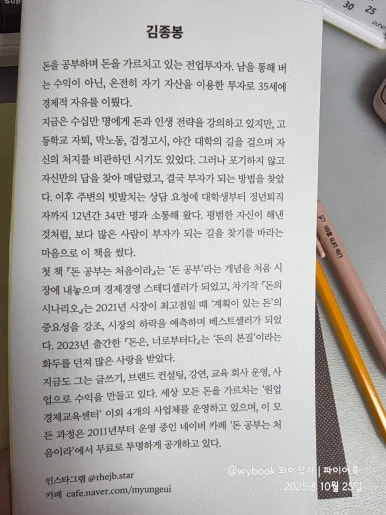 30 25
김종봉
돈을 공부하며 돈을 가르치고 있는 전업투자자. 남을 통해 버
는 수익이 아닌, 온전히 자기 자산을 이용한 투자로 35세에
경제적 자유를 이뤘다.
지금은 수십만 명에게 돈과 인생 전략을 강의하고 있지만, 고
등학교 자퇴, 막노동, 검정고시, 야간 대학의 길을 걸으며 자
신의 처지를 비관하던 시기도 있었다. 그러나 포기하지 않고
자신만의 답을 찾아 매달렸고, 결국 부자가 되는 방법을 찾았
다. 이후 주변의 빗발치는 상담 요청에 대학생부터 정년퇴직
자까지 12년간 34만 명과 소통해 왔다. 평범한 자신이 해낸
것처럼, 보다 많은 사람이 부자가 되는 길을 찾기를 바라는
마음으로 이 책을 썼다.
첫 책 『돈 공부는 처음이라』는 '돈 공부'라는 개념을 처음 시
장에 내놓으며 경제경영 스테디셀러가 되었고, 차기작 『돈의
시나리오』는 2021년 시장이 최고점일 때 '계획이 있는 돈'의
중요성을 강조, 시장의 하락을 예측하며 베스트셀러가 되었
다. 2023년 출간한 『돈은, 너로부터다』는 '돈의 본질'이라는
화두를 던져 많은 사랑을 받았다.
지금도 그는 글쓰기, 브랜드 컨설팅, 강연, 교육 회사 운영, 사
업으로 수익을 만들고 있다. 세상 모든 돈을 가르치는 '원업
경제교육센터' 이외 4개의 사업체를 운영하고 있으며, 이 모
든 과정은 2011년부터 운영 중인 네이버 카페 '돈 공부는 처
음이라'에서 무료로 투명하게 공개하고 있다.
인스타그램 @thejb.star
카페 cafe.naver.com/myungeui
@wybook 와이 작가 | 파이어북
2025년 10월 25일